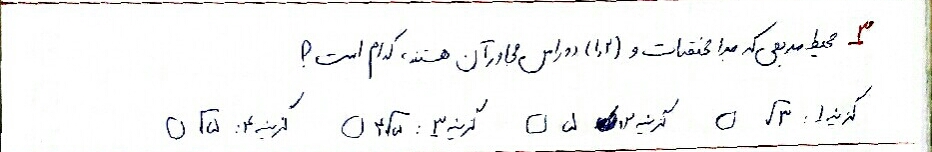 ۳ محیط مربعی که مبدا مختصات و (۲،۱) دو راس مجاور آن هستند، کدام است؟
گزینه ۱: √۳ گزینه ۲: ۵ گزینه ۳: ۴√۵ گزینه ۴: √۵